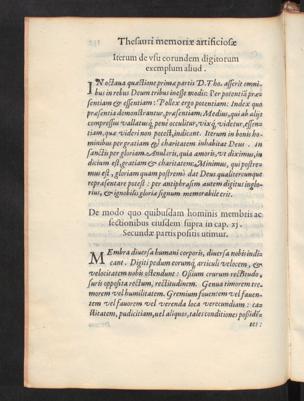 Thesauri memoriæ artificiosæ
Iterum de vsu eorundem digitorum
exemplum aliud.
IN octaua quæstione primæ partis D. Tho. asserit omni-
bus in rebus Deum tribus inesse modis: Per potentiã præ
sentiam & essentiam: Pollex ergo potentiam: Index quo
præsentia demonstrantur, præsentiam; Medius, qui ab alijs
compressus vallatusq́; penè occulitur, vixq́; videtur, essen-
tiam, quæ videri non potest, indicant. Iterum in bonis ho-
minibus per gratiam & charitatem inhabitat Deus. In
sanctis per gloriam. Anularis, quia amoris, vt diximus, in
dicium est, gratiam & charitatem: Minimus, qui postre-
mus est, gloriam quam postremò dat Deus qualitercunque
repræsentare potest: per antiphrasim autem digitus inglo-
rius, & ignobilis gloria signum memorabile erit.
De modo quo quibusdam hominis membris ac
sectionibus eiusdem supra in cap. xj.
Secundæ partis positis utimur.
MEmbra diuersa humani corporis, diuersa nobis indi
cant. Digiti pedum eorumq́; articuli velocem, &
velocitatem nobis ostendunt: Ossium crurum rectitudo,
suris opposita rectum, rectitudinem. Genua timorem tre-
morem vel humilitatem. Gremium fouentem vel fauen-
tem vel fauorem vel verenda loca verecundiam: ca-
stitatem, pudicitiam, uel aliquos, tales conditiones possidẽ-
tes: